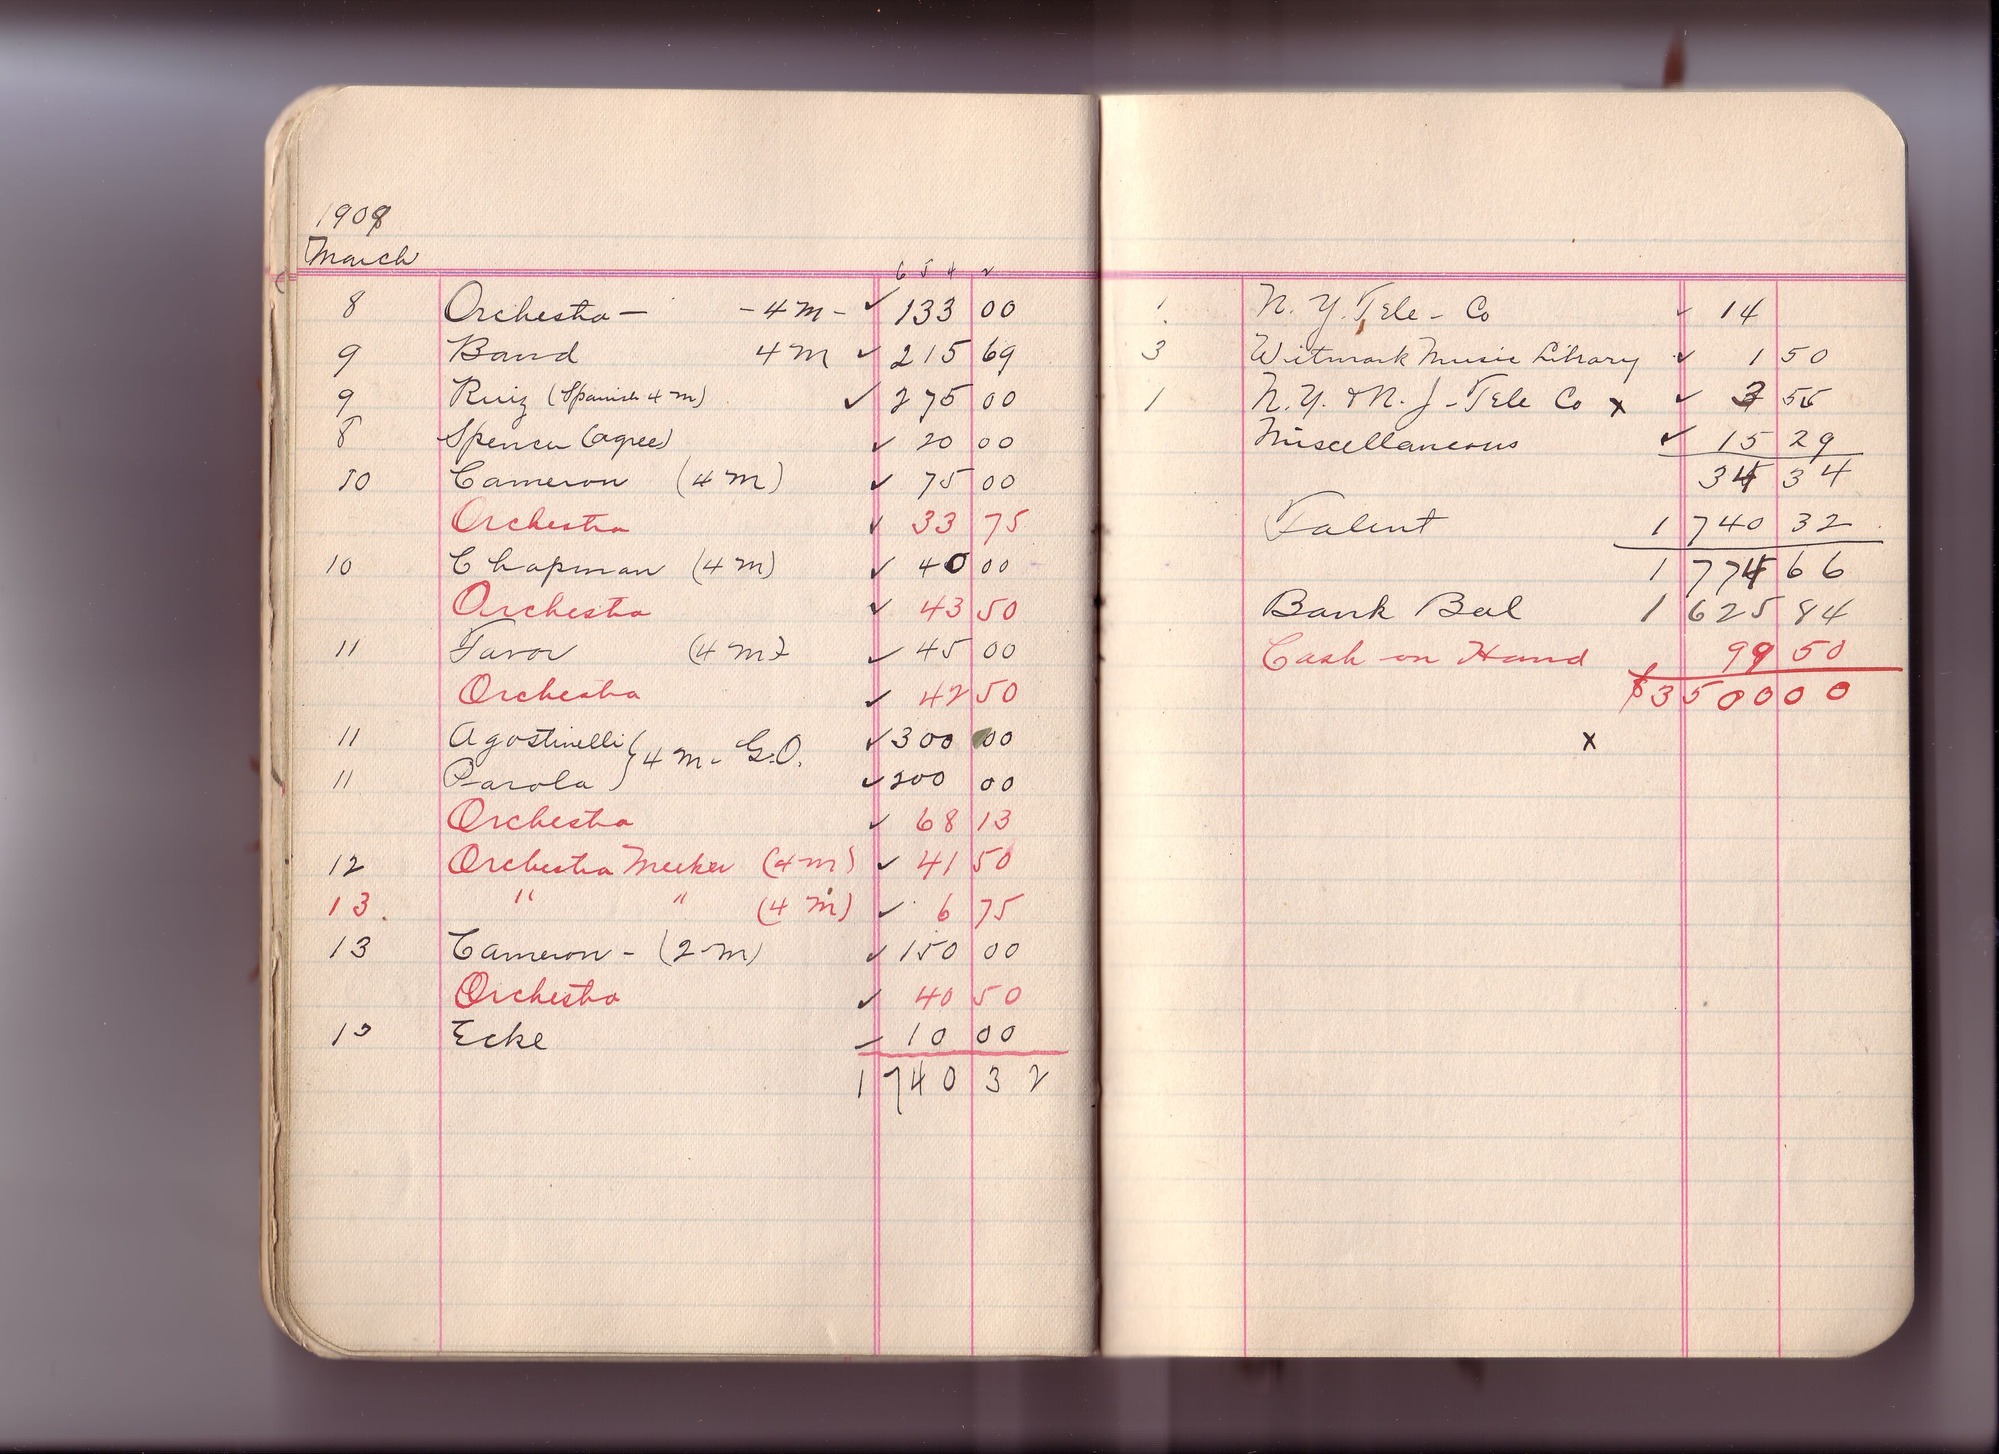 1909
March
6 5 4 2
8 Orchestra — - 4 M - ✓ 133 00
9 Band 4 M ✓ 215 69
9 Ruiz (Spanish 4 M) ✓ 275 00
8 Spencer (agree) ✓ 20 00
10 Cameron (4 M) ✓ 75 00
Orchestra ✓ 33 75
10 Chapman (4 M) ✓ 40 00
Orchestra ✓ 43 50
11 Favor (4 M) ✓ 45 00
Orchestra ✓ 42 50
11 Agostinelli ✓ 300 00
4 M - G.O.
11 Parola ✓ 200 00
Orchestra ✓ 68 13
12 Orchestra Meeker (4 M) ✓ 41 50
13. " " (4 M) ✓ 6 75
13 Cameron - (2 M) ✓ 150 00
Orchestra ✓ 40 50
Ecke 10 00
1 740 32
1 N. Y. Tele - Co ✓ 14
3 Witmark Music Library ✓ 1 50
1 N. Y. & N. J - Tele Co x ✓ 3 55
Miscellaneous ✓ 15 29
34 34
Talent 1 740 32
1 774 66
Bank Bal 1 625 84
Cash on Hand 99 50
$3 500 00
x